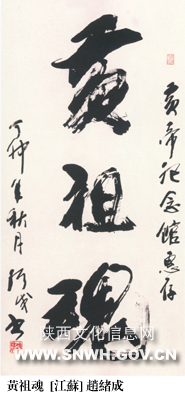 黄帝纪念馆惠存
黄祖魂
年秋月绪成书
陕西文化信息网
WWW.SNWH.GOV.CN
黃祖魂 [江蘇] 趙緒成